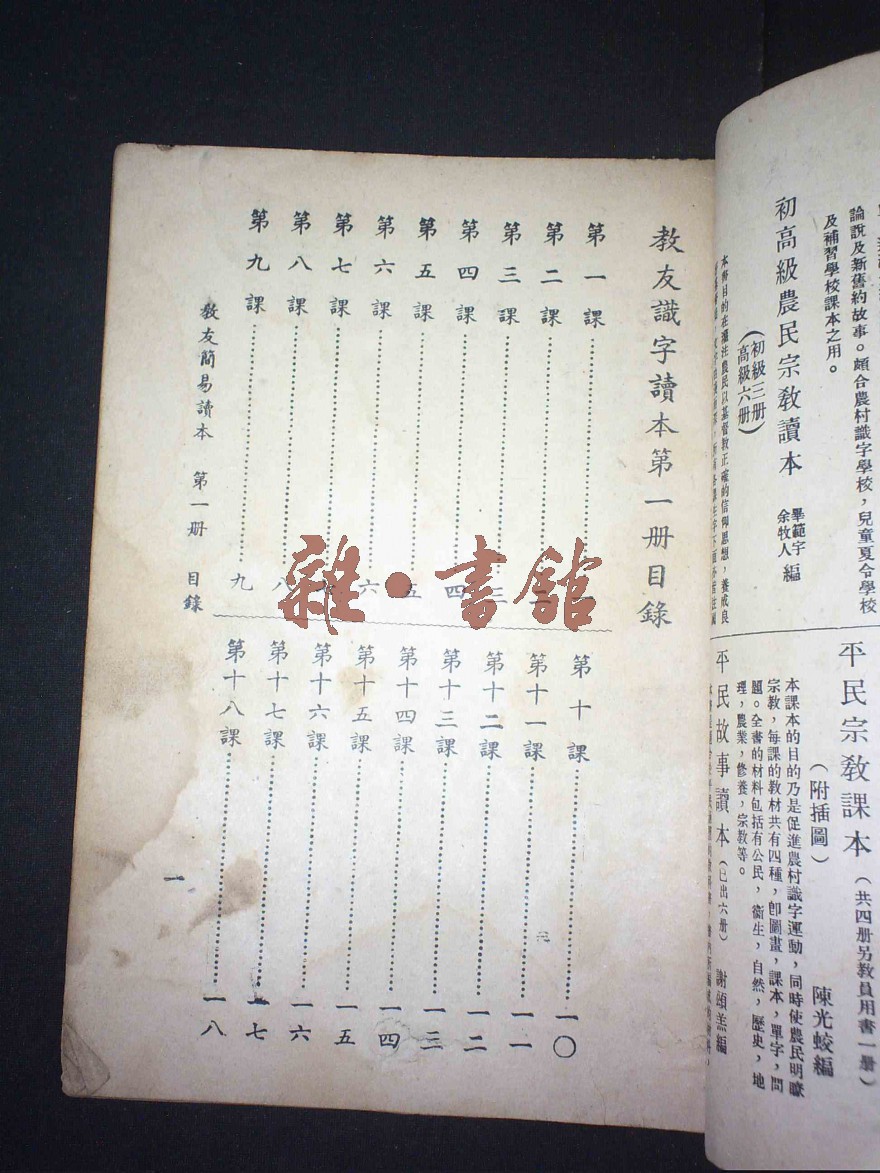 論說及新舊約故事。頗合農村識字學校，兒童夏令學校
及補習學校課本之用。
初高級農民宗教讀本
(初級三册)
(高級六册)
畢範宇
余牧人 編
本書目的在灌注農民以基督教正確的信仰思想，養成良
平民宗教課本 (共四册另教員用書一册)
(附插圖)
陳光蛟編
本課本的目的乃是促進農村識字運動，同時使農民明瞭
宗教，每課的教材共有四種，卽圖畫，課本，單字，問
題。全書的材料包括有公民，衞生，自然，歷史，地
理，農業，修養，宗教等。
平民故事讀本 (已出六册) 謝頌羔編
教友識字讀本第一册目錄
第一課 一
第二課 二
第三課 三
第四課 四
第五課 五
第六課 六
第七課
第八課 八
第九課 九
第十課 一〇
第十一課 一一
第十二課 一二
第十三課 一三
第十四課 一四
第十五課 一五
第十六課 一六
第十七課 一七
第十八課 一八
教友簡易讀本 第一册 目錄
一
雜·書館